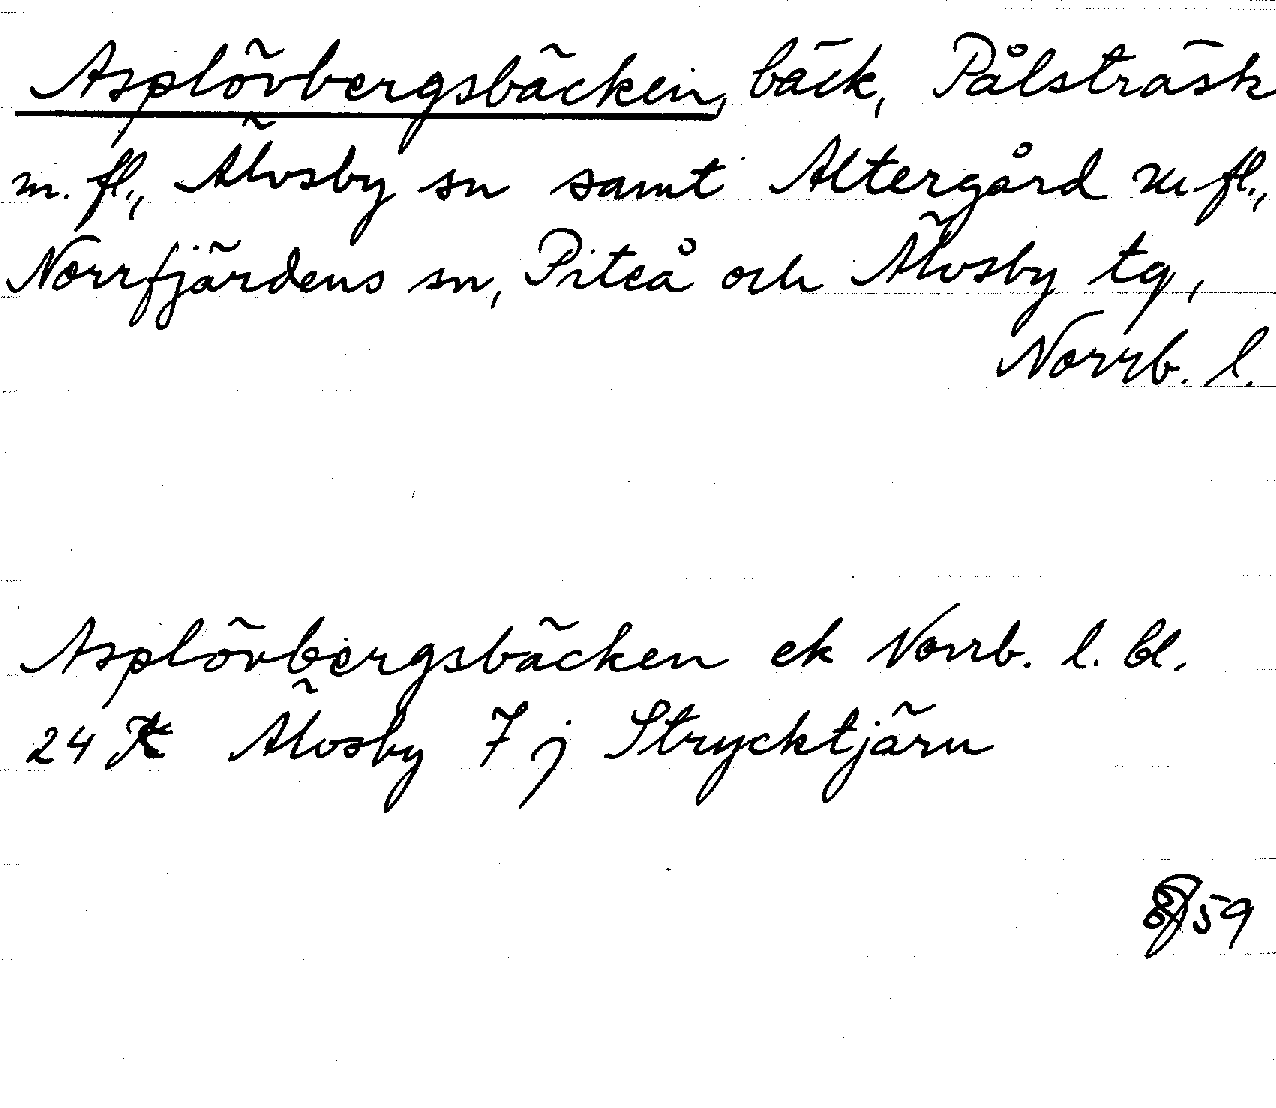 Asplövbergsbäcken, bäck, Pålsträsk
m. fl., Älvsby sn samt Altergård m fl.,
Norrfjärdens sn, Piteå och Älvsby tg,
Norrb. l.
Asplövbergsbäcken ek Norrb. l. bl.
24 K Älvsby 7 j Strycktjärn
59